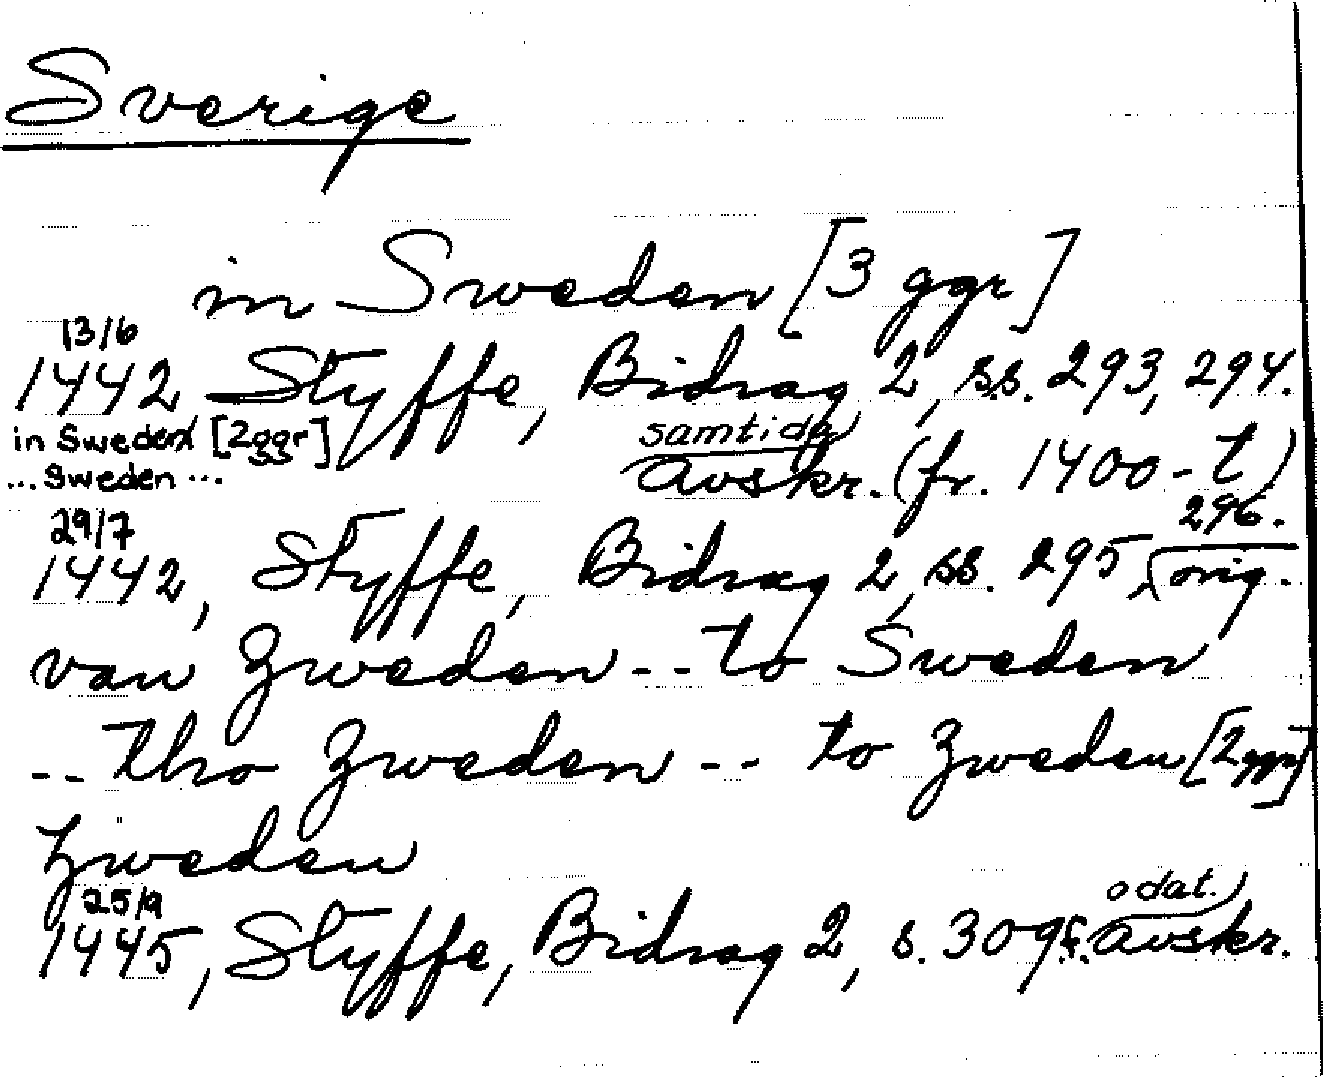 Sverige
in Sweden [3 ggr]
13/6
1442 Styffe, Bidrag 2, ss. 293, 294.
in Sweden [2ggr]
samtida
... Sweden ...
avskr. (fr. 1400-t)
29/7
296.
1442, Styffe, Bidrag 2, ss. 295, orig.
van Zweden -- to Sweden
-- tho Zweden -- to Zweden [2ggr]
Zweden
25/9
odat.
1445, Styffe, Bidrag 2, s. 309f. avskr.